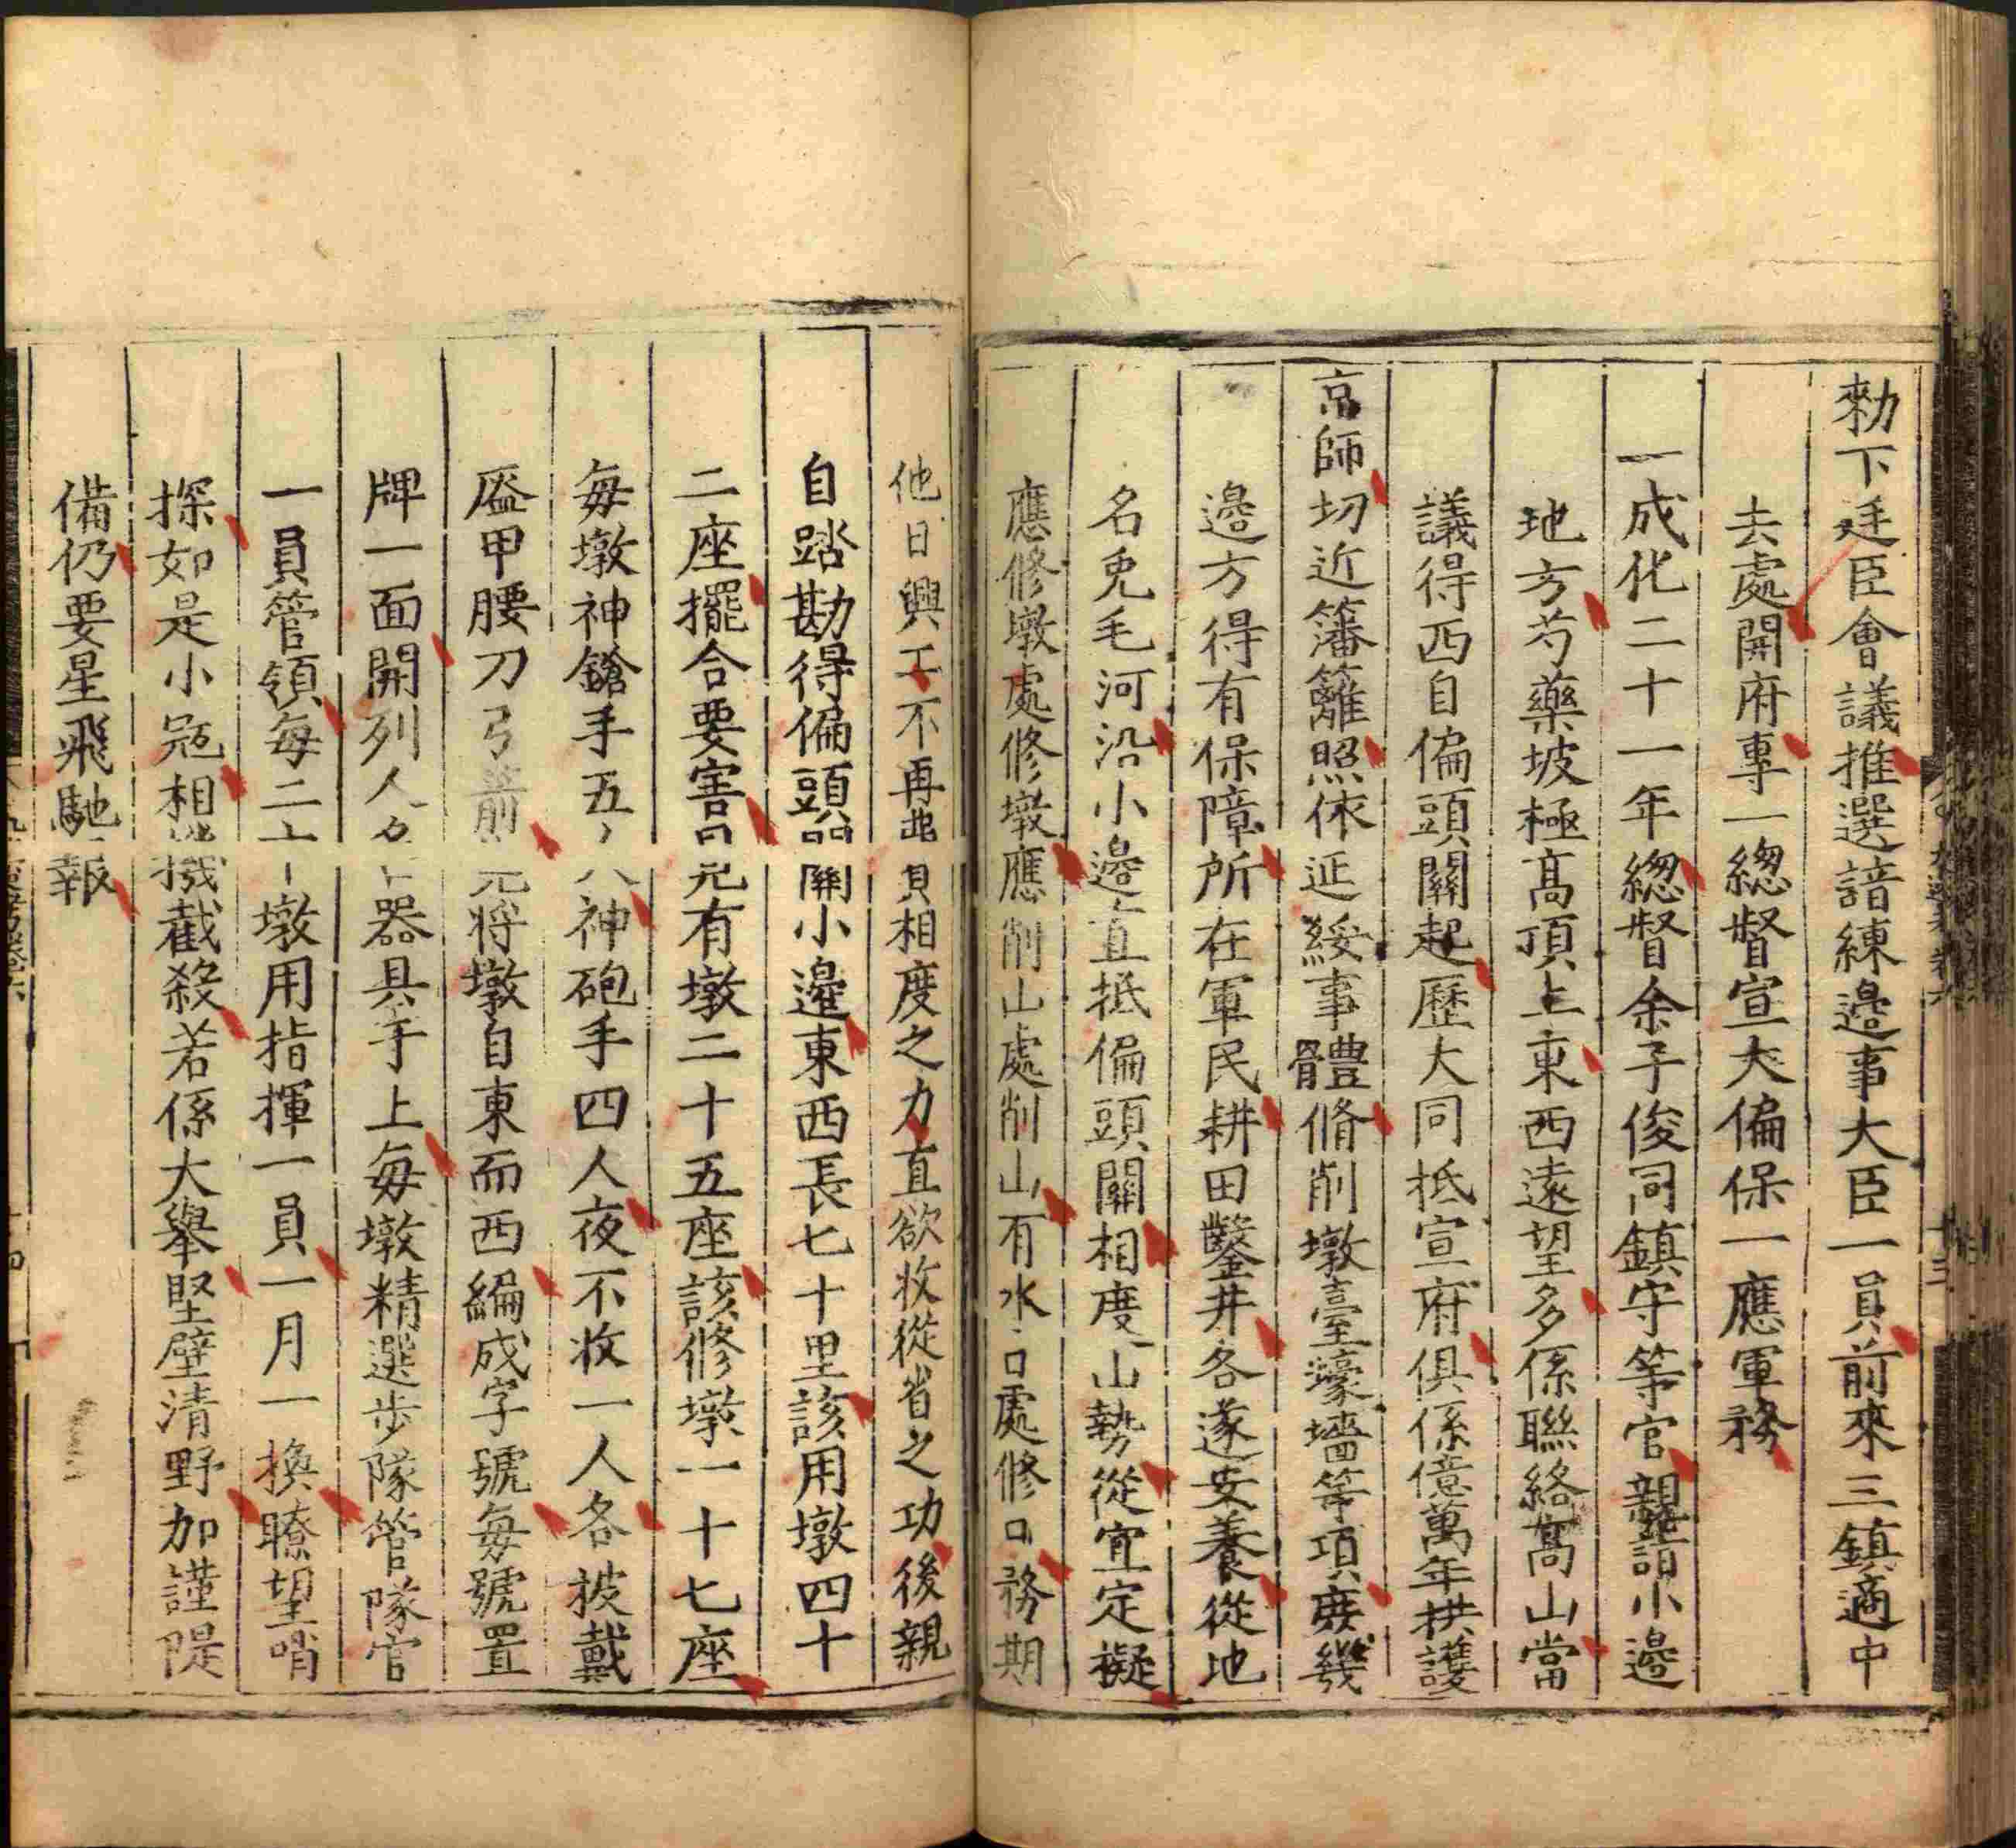 勑下廷臣會議推選諳練邊事大臣一員前來三鎮適中
去處開府專一緫督宣大偏保一應軍務
一成化二十一年緫督余子俊同鎮守等官親詣小邉
地方芍藥坡極高頂上東西遠望多係聯絡高山當
議得西自偏頭關起歷大同抵宣府俱係億萬年拱護
京師切近籓籬照依延綏事體脩削墩臺濠墻等項庻幾
邉方得有保障所在軍民耕田鑿井各遂安養從地
名兎毛河沿小邉直抵偏頭關相度山勢從宜定擬
應修墩處修墩應削山處削山有水口處修口務期
他日興工不再
相度之力直欲收從省之功後親
自踏勘得偏頭關小邉東西長七十里該用墩四十
二座擺合要害
元有墩二十五座該修墩一十七座
毎墩神鎗手五人神砲手四人夜不收一人各披戴
盔甲腰刀弓箭
元將墩自東而西編成字號毎號置
牌一面開列人名
器具于上毎墩精選步隊管隊官
一員管領每二十墩用指揮一員一月一換瞭望哨
探如是小冦相機截殺若係大舉堅壁清野加謹隄
備仍要星飛馳報
十三